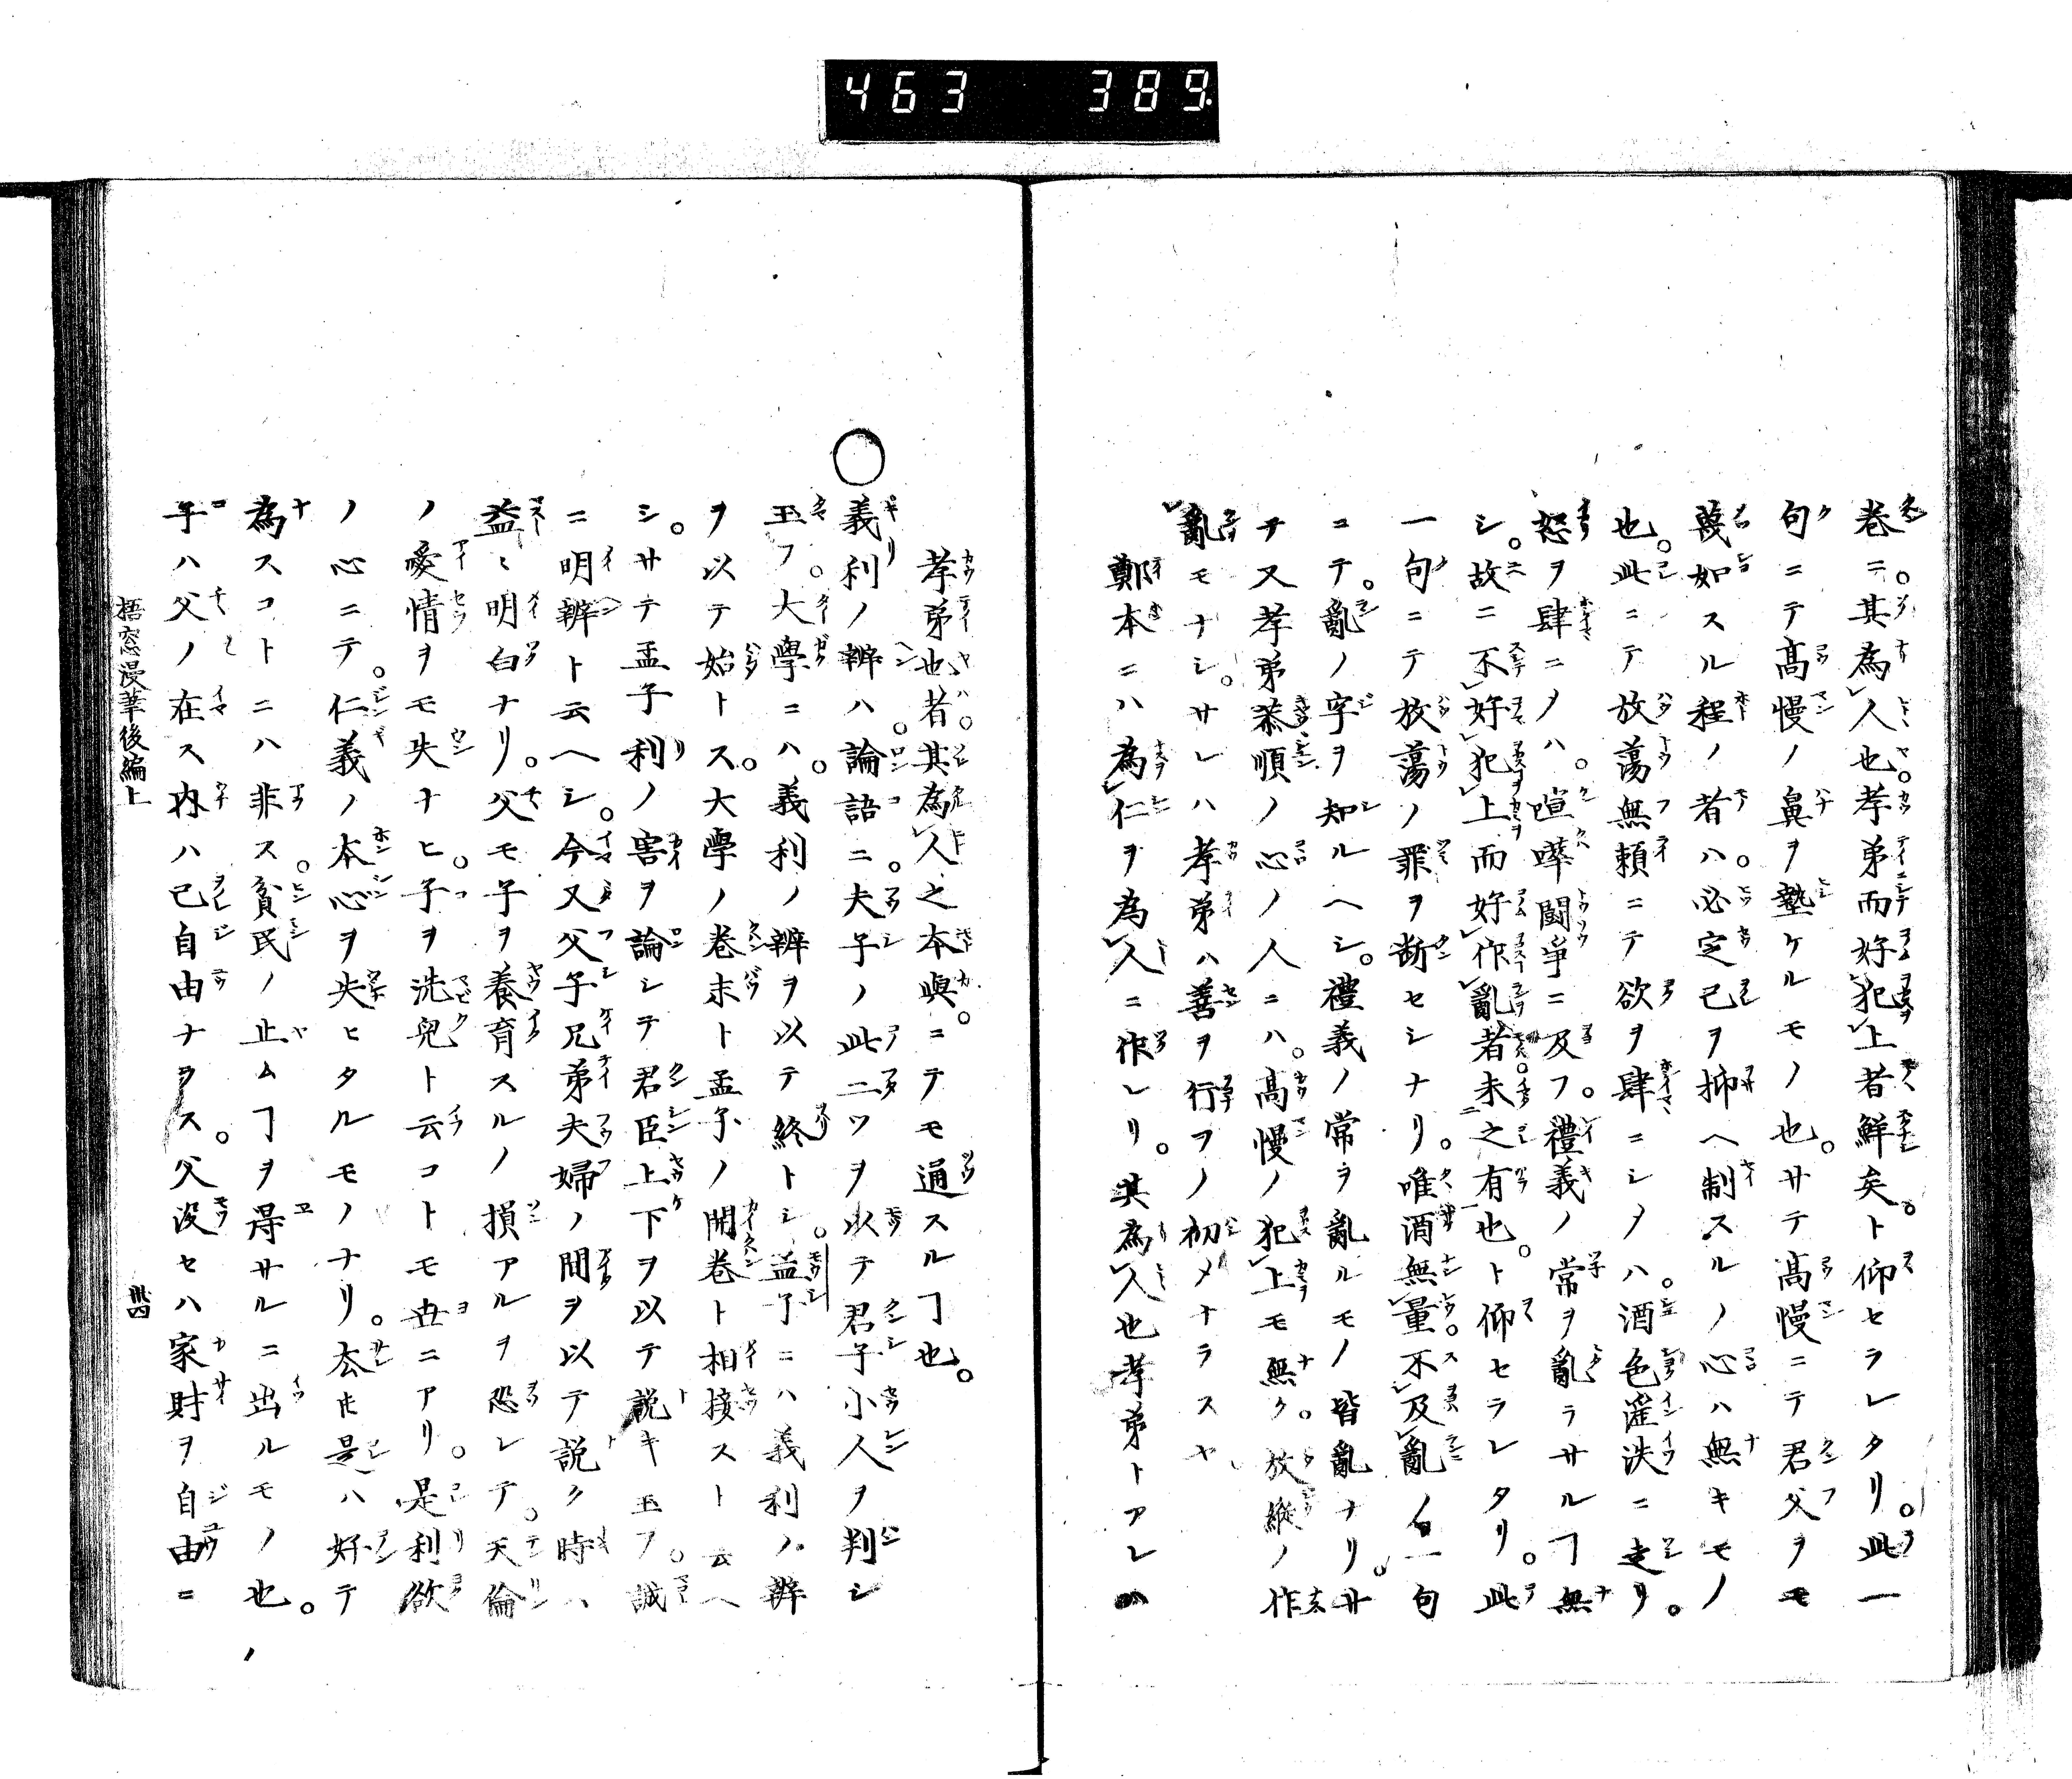 463 389.
巻ニ。其為人也。孝弟而好犯上者鮮矣。ト仰セラレタリ。此一
句ニテ高慢ノ鼻ヲ塾ケルモノ也。サテ高慢ニテ君父ヲモ
蔑如スル程ノ者ハ。必定己ヲ抑ヘ制スルノ心ハ無キモノ
也。此ニテ放蕩無頼ニテ欲ヲ肆ニシノハ。酒色淫泆ニ走リ。
怒ヲ肆ニノハ。喧嘩闘爭ニ及フ。禮義ノ常ヲ亂ラサルヿ無
シ。故ニ不好犯上而好作亂者。未之有也。ト仰セラレタリ。此
一句ニテ放蕩ノ罪ヲ断セシナリ。唯酒無量。不及亂ノ一句
ニテ。亂ノ字ヲ知ルヘシ。禮義ノ常ヲ亂ルモノ皆亂ナリ。サ
テ又孝弟恭順ノ心ノ人ニハ。高慢ノ犯上モ無ク。放縦ノ作
亂モナシ。サレハ孝弟ハ善ヲ行フノ初メナラスヤ
鄭本ニハ為仁ヲ為人ニ作レリ。其為人也孝弟トアレハ
孝弟也者。其為人之本與。ニテモ通スルヿ也。
○義利ノ辨ハ。論語ニ。夫子ノ此二ツヲ以テ君子小人ヲ判シ
玉フ。大學ニハ。義利ノ辨ヲ以テ終トシ。孟子ニハ義利ノ辨
ヲ以テ始トス。大學ノ巻末ト孟子ノ開巻ト相接ストニ云ヘ
シ。サテ孟子利ノ害ヲ論シテ君臣上下ヲ以テ説キ玉フ。誠
ニ明辨ト云ヘシ。今又父子兄弟夫婦ノ間ヲ以テ説ク時ハ
益々明白ナリ。父モ子ヲ養育スルノ損アルヲ恐レテ。天倫
ノ愛情ヲモ失ナヒ。子ヲ洗兒ト云コトモ世ニアリ。是利欲
ノ心ニテ。仁義ノ本心ヲ失ヒタルモノナリ。厺𪜈是ハ好テ
為スコトニハ非ス。貧民ノ止ムヿヲ得サルニ出ルモノ也。
子ハ父ノ在ス内ハ己自由ナラス。父没セハ家財ヲ自由ニ
梧窓漫筆後編上
卅四